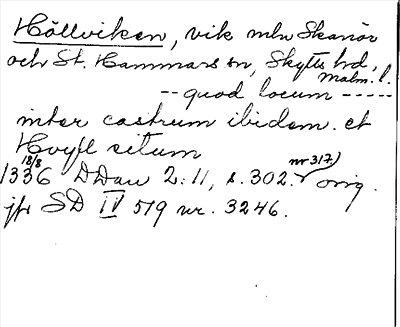 Höllviken, vik mln Skanör
och St. Hammars sn, Skytts hd,
Malm. l.
-- quod locum -----
inter castrum ibidem et
Hvyl situm
1336 18/8 DDan 2:11, s. 302. nr 317) orig.
jfr SD IV 519 nr. 3246.